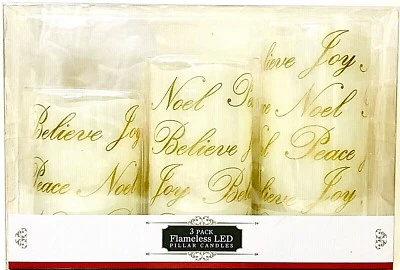 Believe Joy
Peace Noel
Noel Pe
Believe
Joy Be
eve Joy
Noel
Peace
Believe Joy
3 PACK
Flameless LED
PILLAR CANDLES